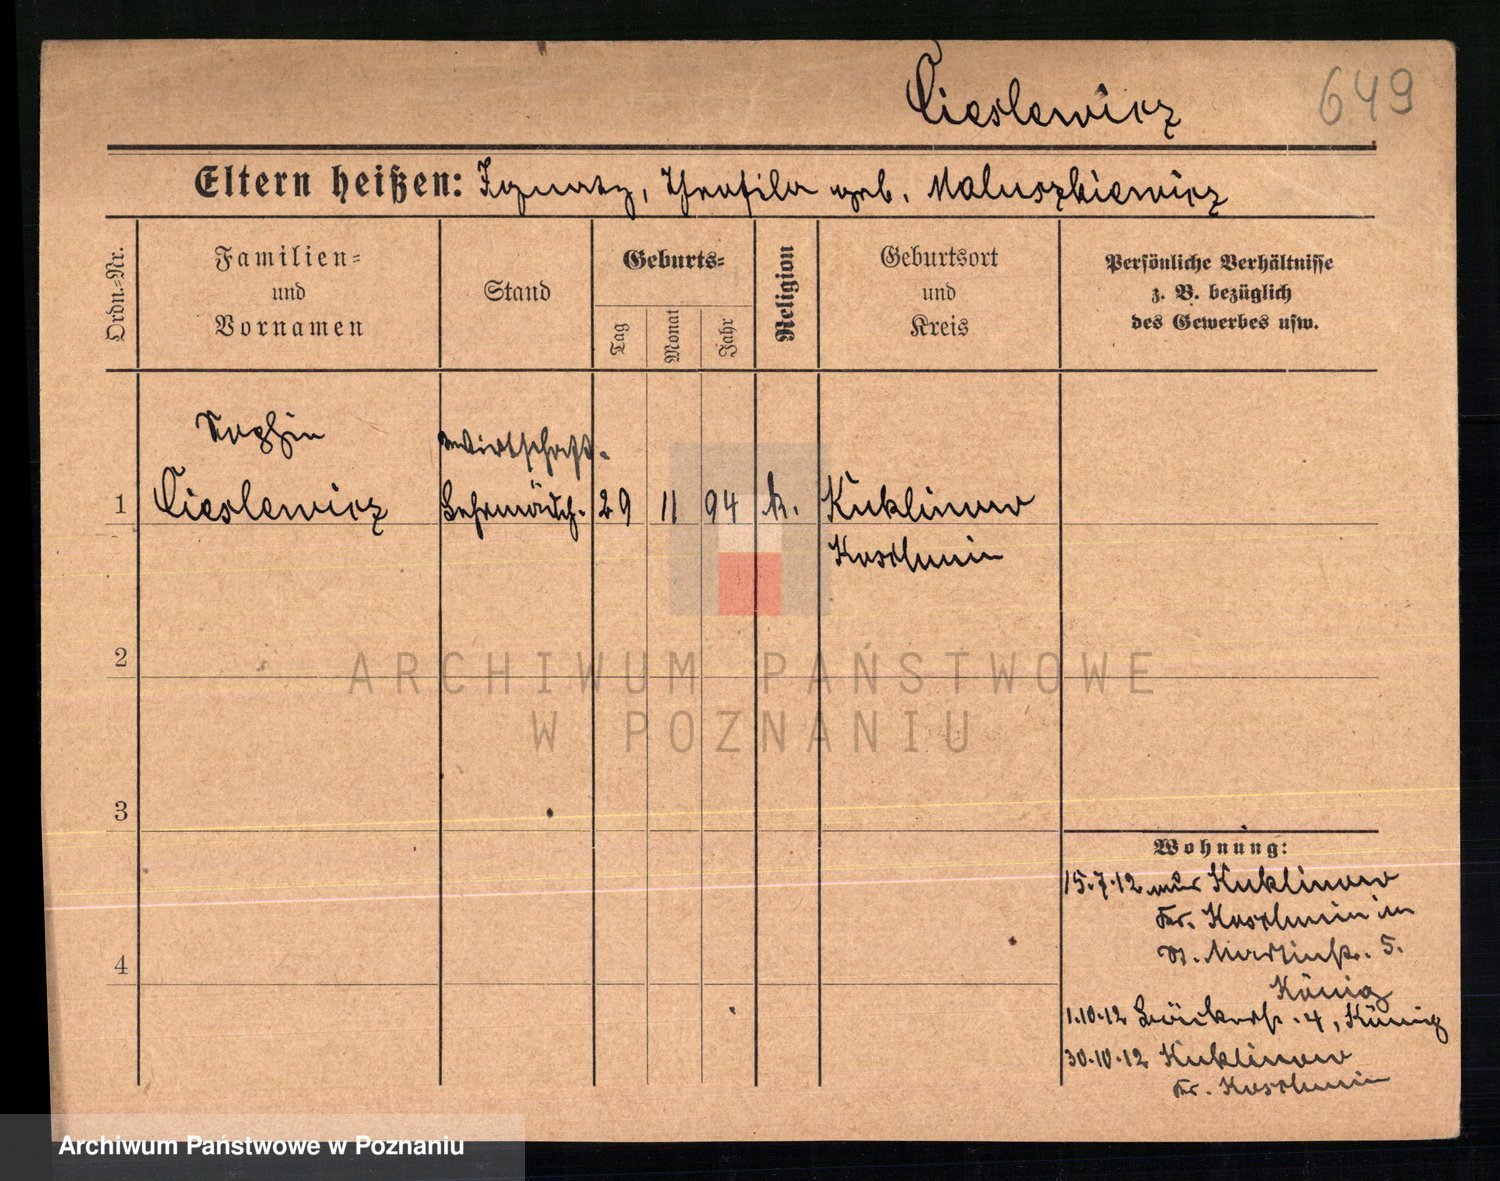 Cieslewicz 649
Eltern heißen: Ignatz, Theofila geb. Maluszkiewicz
Ordn.-Nr.
Familien- und Vornamen
Stand
Geburts-
Tag
Monat
Jahr
Religion
Geburtsort und Kreis
Persönliche Verhältnisse
z. B. bezüglich
des Gewerbes usw.
Sophia
Wirtschafts-
1 Cieslewicz Lehrmädch. 29 11 94 k. Kuklinow
Koschmin
2
3
4
Wohnung:
15.7.12 aus Kuklinow
Kr. Koschmin in
St. Martinstr. 5.
König
1.10.12 Bäckerstr. 4, König
30.10.12 Kuklinow
Kr. Koschmin
ARCHIWUM PAŃSTWOWE
W POZNANIU
Archiwum Państwowe w Poznaniu